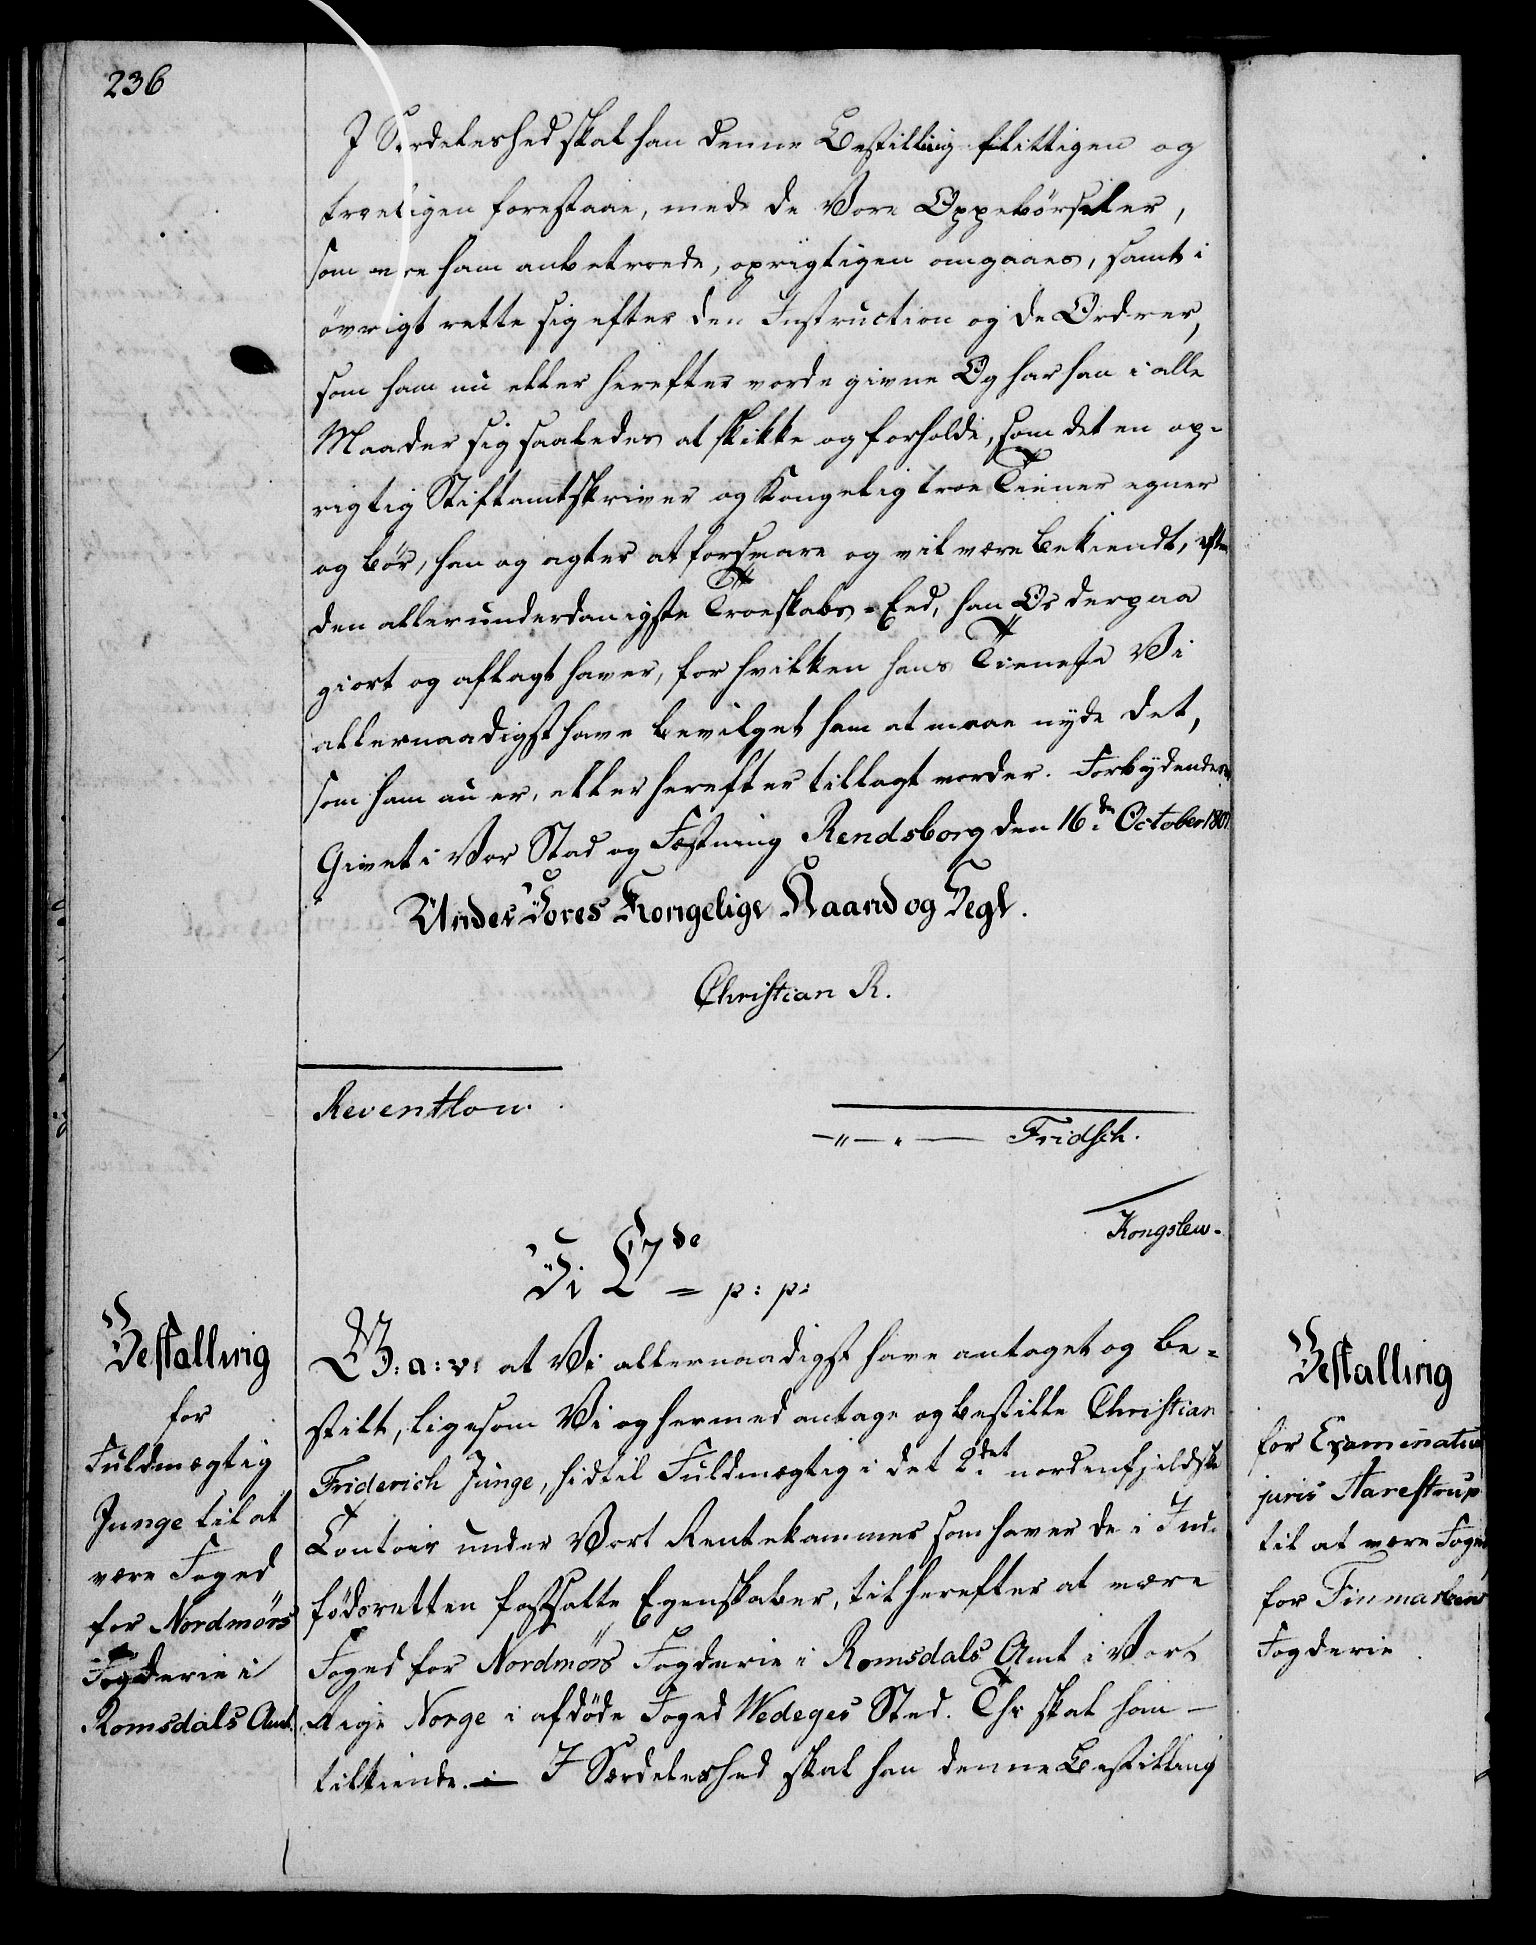 236
I Særdeleshed skal han denne Bestilling flittigen og
troeligen forestaae, med de Vore Oppebörseler,
som ere ham anbetroede, oprigtigen omgaaes, samt i
övrigt rette sig efter den Instruction og de Ordrer,
som ham nu eller herefter vorde givne Og har han i alle
Maader sig saaledes at skikke og forholde, som det en op-
rigtig Stiftamtskriver og Kongelig troe Tiener egner
og bör, han og agter at forsvare og vil være bekiendt, efter
den allerunderdanigste Troeskabs-Eed, han Os derpaa
giort og aflagt haver, for hvilken hans Tieneste Vi
allernaadigst have bevilget ham at maae nyde det,
som ham nu er, eller herefter tillagt vorder. Forbydendes
Givet i Vor Stad og Fæstning Rendsborg den 16de October 1807
Under Vores Kongelige Haand og Segl.
Christian R.
Reventlow.
—„—.— Fridsch.
Kongslew.
Vi C7de = p: p:
Bestalling
for
Fuldmægtig
Junge til at
være Foged
for Nordmörs
Fogderie i
Romsdals Amt.
G: a: v: at Vi allernaadigst have antaget og be-
stilt, ligesom Vi og hermed antage og bestille Christian
Friderich Junge, hidtil Fuldmægtig i det 2det nordenfjeldske
Contoir under Vort Rentekammer som haver de i Ind-
födsretten fastsatte Egenskaber, til herefter at være
Foged for Nordmörs Fogderie i Romsdals Amt i Vort
Rige Norge i afdöde Foged Wedeges Sted. Thi skal han —
tilkiende. — I Særdeleshed skal han denne Bestilling
Bestalling
for Examinatus
juris Aarestrup
til at være Foged
for Finmarkens
Fogderie.